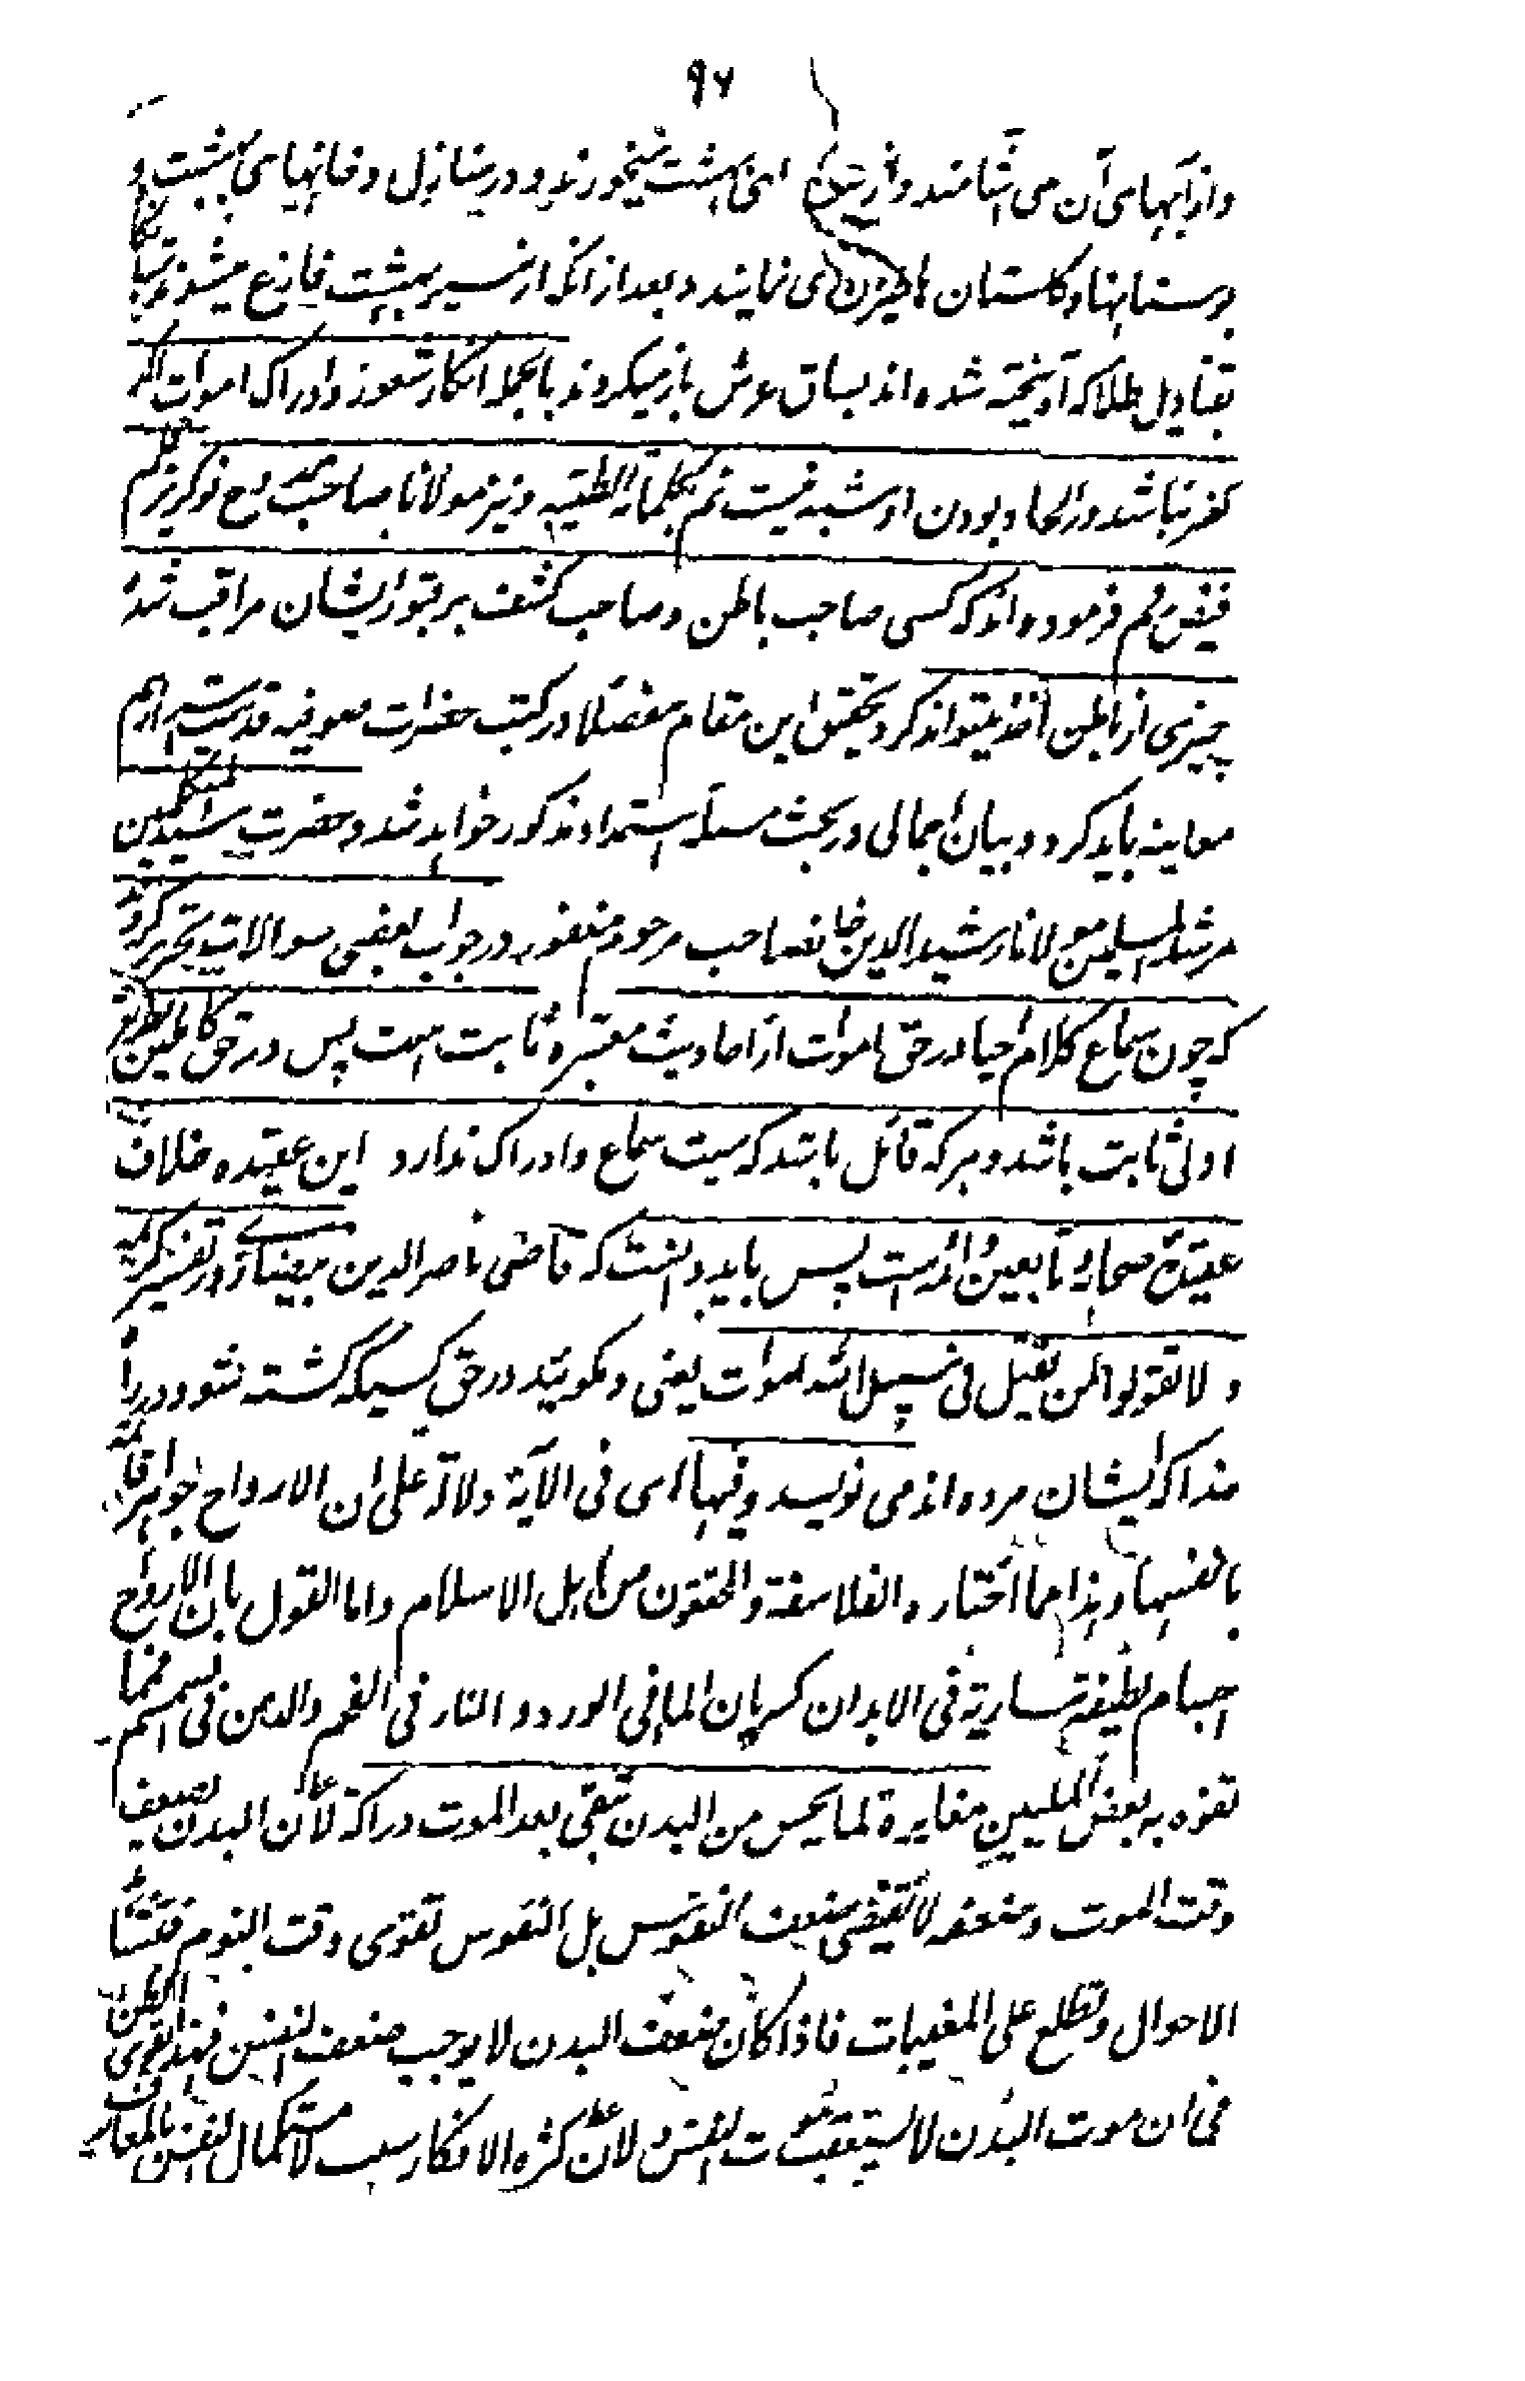 ۹۶
و از آبهای آن می آشامند و از ... بهشت میخورند و در منازل و خانهای بهشت و
بوستانها و گلستان ها ... می نمایند و بعد از آنکه از سیر بهشت فارغ میشوند
بقنادیل طلا که آویخته شده اند بساق عرش باز میگردند بالجمله انکار شعور و ادراک اموات اگر
کفر نباشد در الحاد بودن او شبه نیست تم بکلماته الطیبه و نیز مولانا صاحب ممدوح
فرموده اند که کسی صاحب باطن و صاحب کشف بر قبور ایشان مراقب شده
چیزی از باطن اخذ میتواند کرد و تحقیق این مقام مفصلا در کتب حضرات صوفیه قدست اسرارهم
معاینه باید کرد و بیان اجمالی در بحث مسئله استمداد مذکور خواهد شد و حضرت سید المتکلمین
مرشد المسلمین مولانا رشید الدین خانصاحب مرحوم مغفور در جواب بعضی سوالات تحریر کردند
که چون سماع کلام احیا در حق اموات از احادیث معتبره ثابت است پس در حق کاملین بطریق
اولی ثابت باشد و هر که قائل باشد که میت سماع و ادراک ندارد این عقیده خلاف
عقیده صحابه و تابعین و ائمه است پس باید دانست که قاضی ناصر الدین بیضاوی در تفسیر کریمه
و لا تقولوا لمن یقتل فی سبیل الله اموات یعنی و مگوئید در حق کسیکه کشته شود در راه
خدا که ایشان مرده اند می نویسد و فیها ای فی الآیة دلالة علی ان الارواح جواهر قائمة
بانفسها و هذا مما اختاره الفلاسفة والمحققون من اهل الاسلام واما القول بان الارواح
اجسام لطیفة ساریة فی الابدان کسریان الماء فی الورد و النار فی الفحم والدهن فی السمسم فمما
تفوه به بعض الملیین مغایرة لما یحس من البدن تبقی بعد الموت دراکة لان البدن یضعف
وقت الموت وضعفه لا یقتضی ضعف النفوس بل النفوس تقوی وقت النوم فتشاهد
الاحوال و تطلع علی المغیبات فاذا کان ضعف البدن لا یوجب ضعف النفس فهذا یقوی الظن
فی ان موت البدن لا یستعقب موت النفس و لان کثرة الافکار سبب لاستکمال النفس بالمعارف